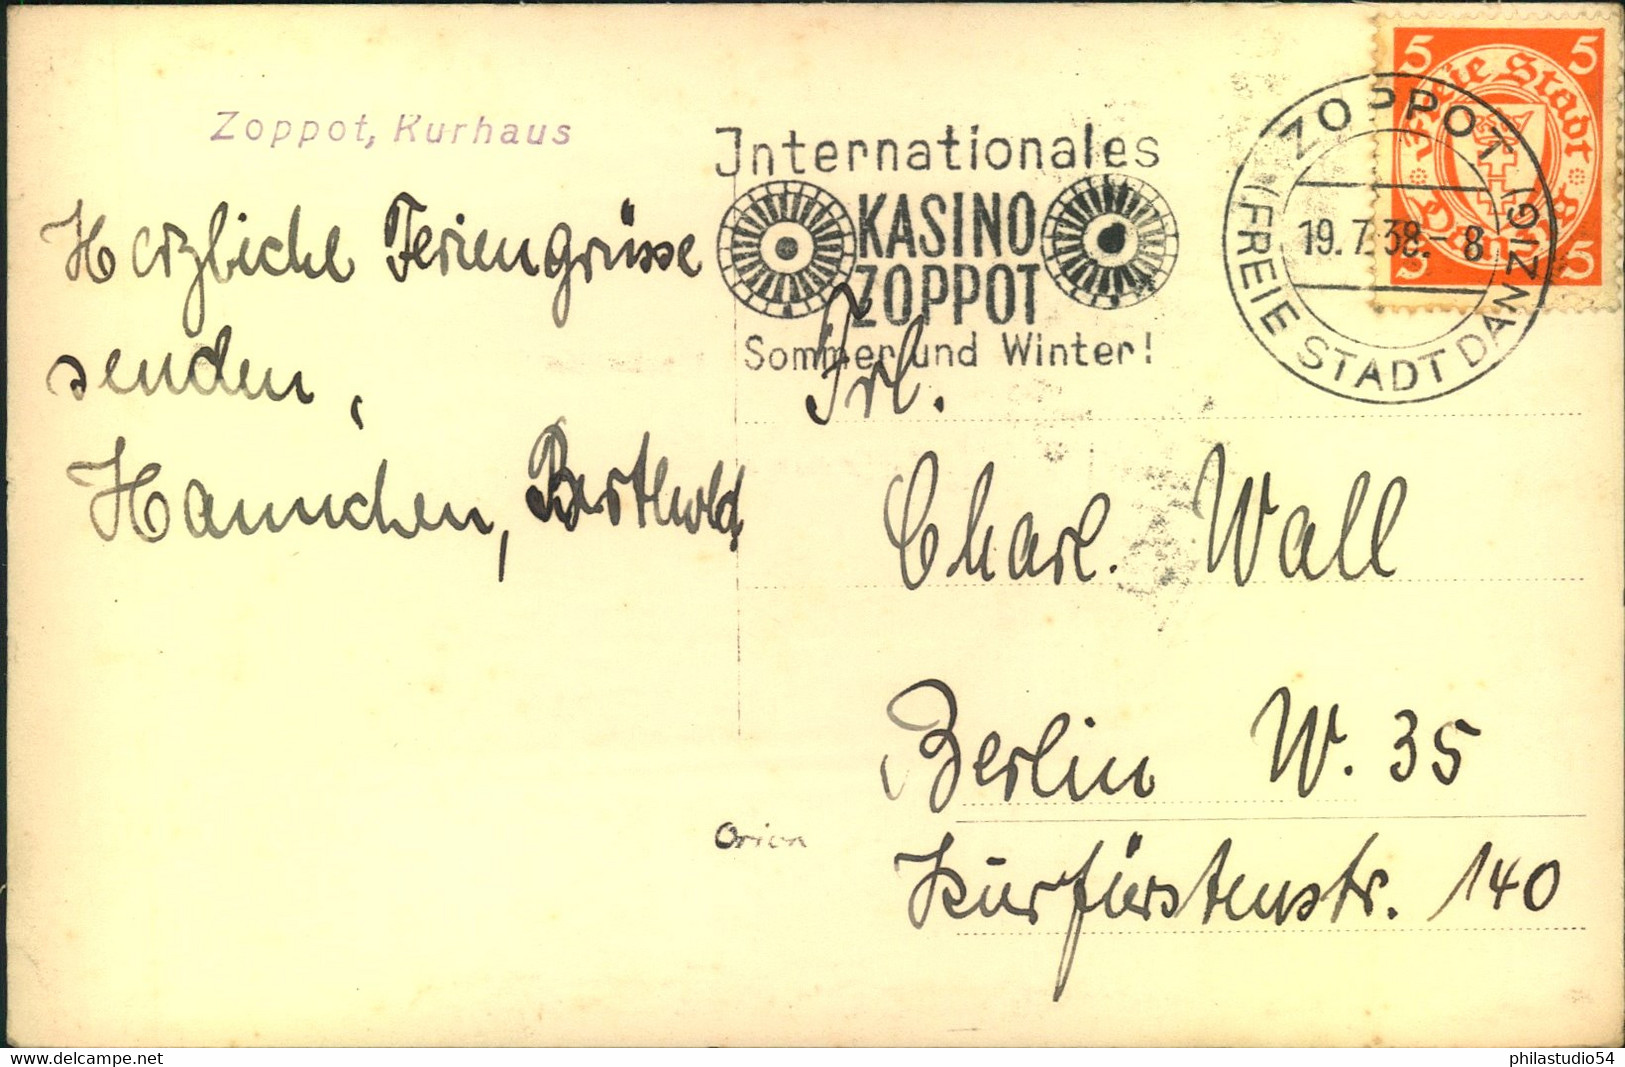 Zoppot, Kurhaus
Herzliche Feriengrüsse
senden,
Hannchen, Berthold
Internationales
KASINO
ZOPPOT
Sommer und Winter!
ZOPPOT
19.7.38.-8
(FREIE STADT DANZIG)
5 5
Freie Stadt
Danzig
5 5
Frl.
Charl. Wall
Berlin W. 35
Kurfürstenstr. 140
Orion
delcampe.net
philastudio54